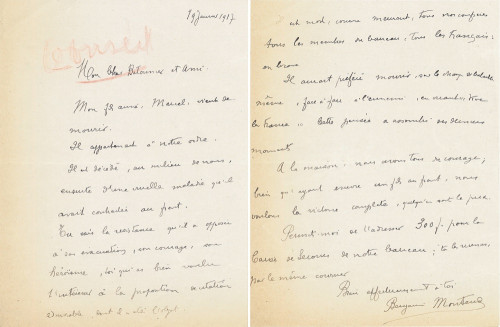 19 janvier 1917
Conseil
Mon cher Bâtonnier et ami.
Mon fils aîné, Marcel, vient de
mourir.
Il appartenait à notre ordre.
Il est décédé, au milieu de nous,
ensuite d'une cruelle maladie qu'il
avait contractée au front.
Tu sais la résistance qu'il a opposée
à son évacuation, son courage, son
héroïsme, toi qui as bien voulu
t'intéresser à la proposition de citation
mort, comme meurent, tous nos confrères
tous les membres du barreau, tous les Français:
en brave
Il aurait préféré mourir, sur le champ de bataille
même, face à face à l'ennemi, en
la France" Cette pensée a assombri ses derniers
moments
A la maison, nous avons tous ce courage,
bien qu'ayant encore un fils au front, nous
voulons la victoire complète, quelqu'en soit le prix.
Permets-moi de t'adresser 300f. pour la
Caisse de Secours de notre barreau; tu les recevras,
par le même courrier
Bien affectueusement à toi
Benjamin